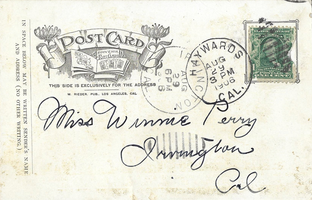 POST CARD
THIS SIDE IS EXCLUSIVELY FOR THE ADDRESS
M. RIEDER, PUB. LOS ANGELES, CAL.
IN SPACE BELOW MAY BE WRITTEN SENDER'S NAME
AND ADDRESS (NO OTHER WRITING)
HAYWARDS
AUG
29
3 PM
1906
CAL.
IRVINGTON
AUG
29
6 PM
1906
Miss Winnie Perry
Irvington
Cal